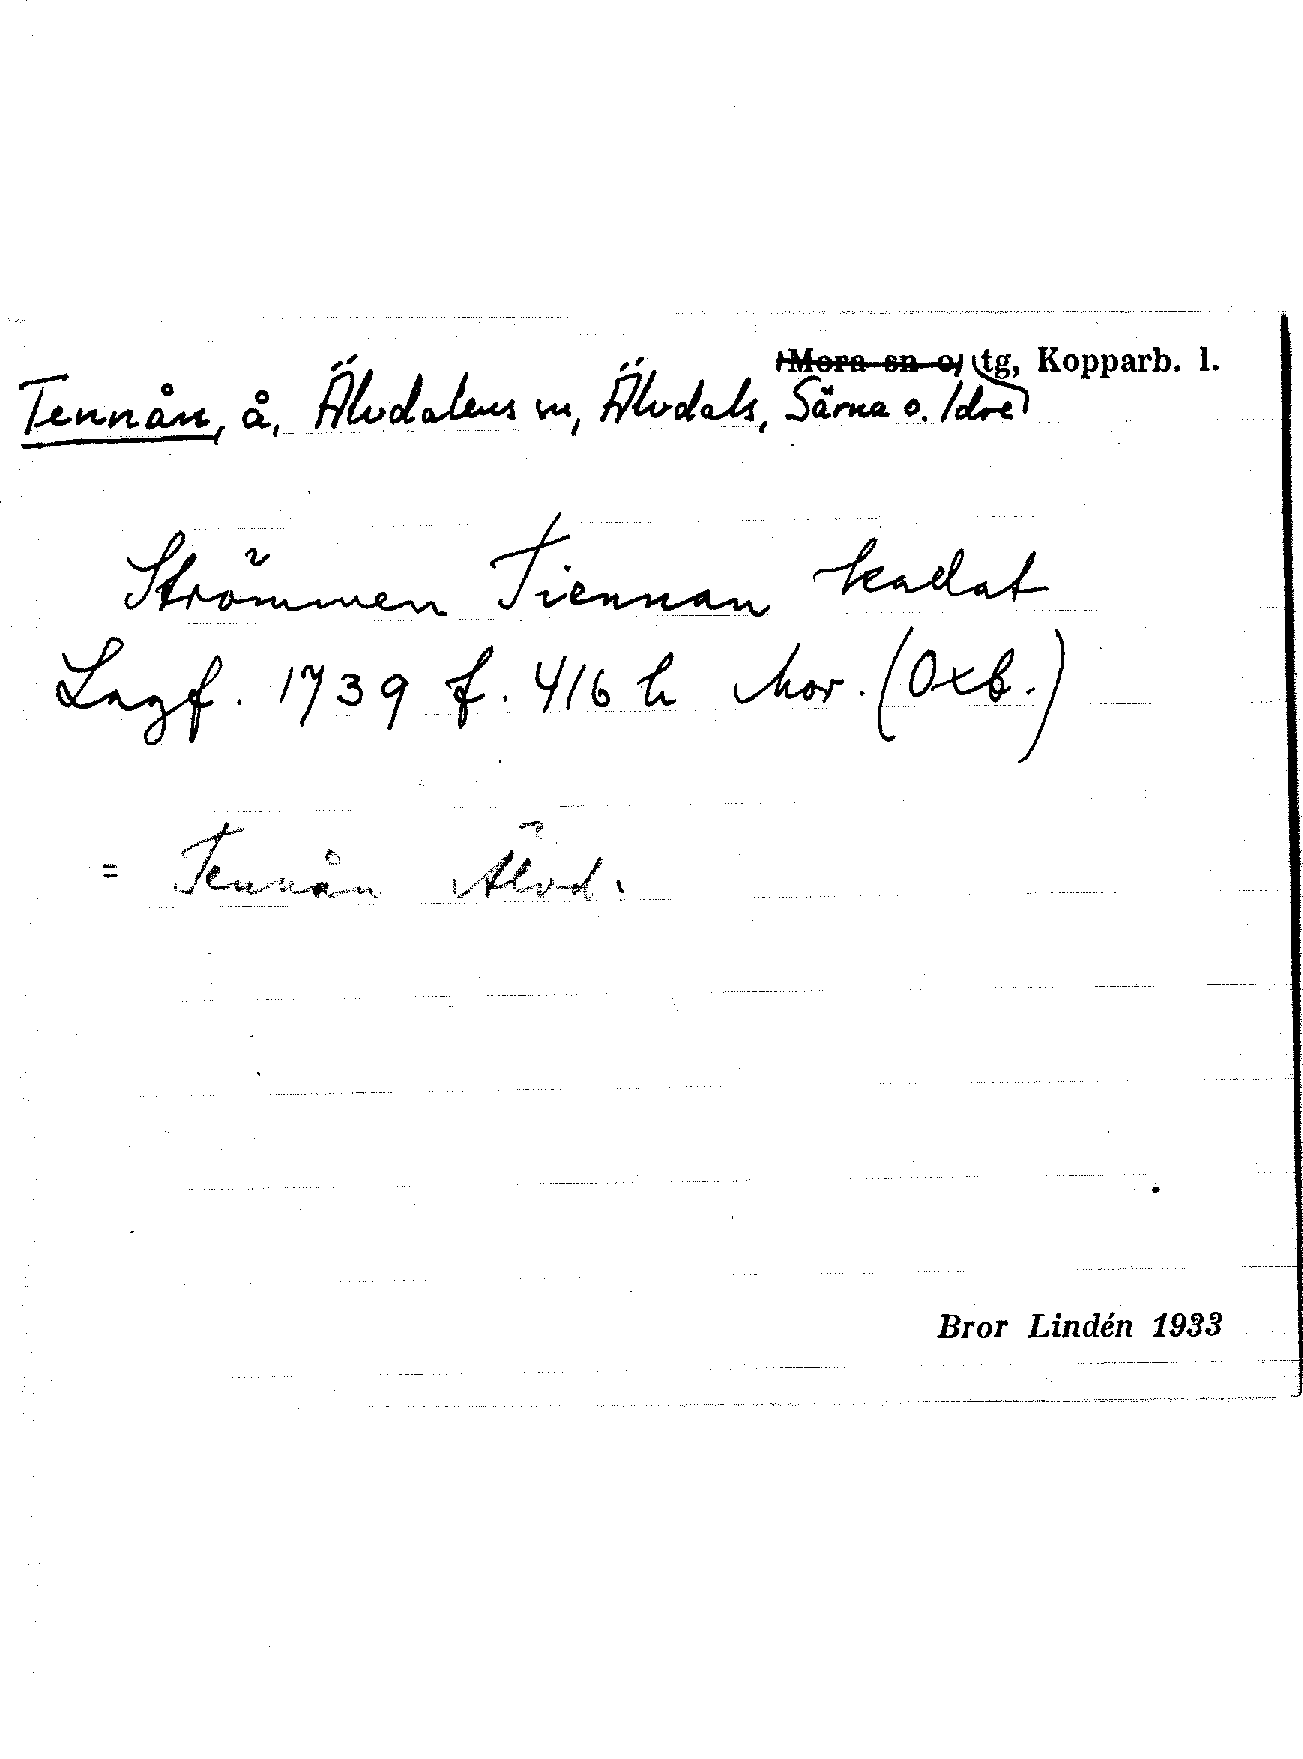 Mora sn o. tg, Kopparb. l.
Tennån, å, Älvdalens sn, Älvdals, Särna o. Idre
Strömmen Tiennan kallat
Lagf. 1739 f. 416 h Mor. (Oxb.)
= Tennån Älvd.
Bror Lindén 1933